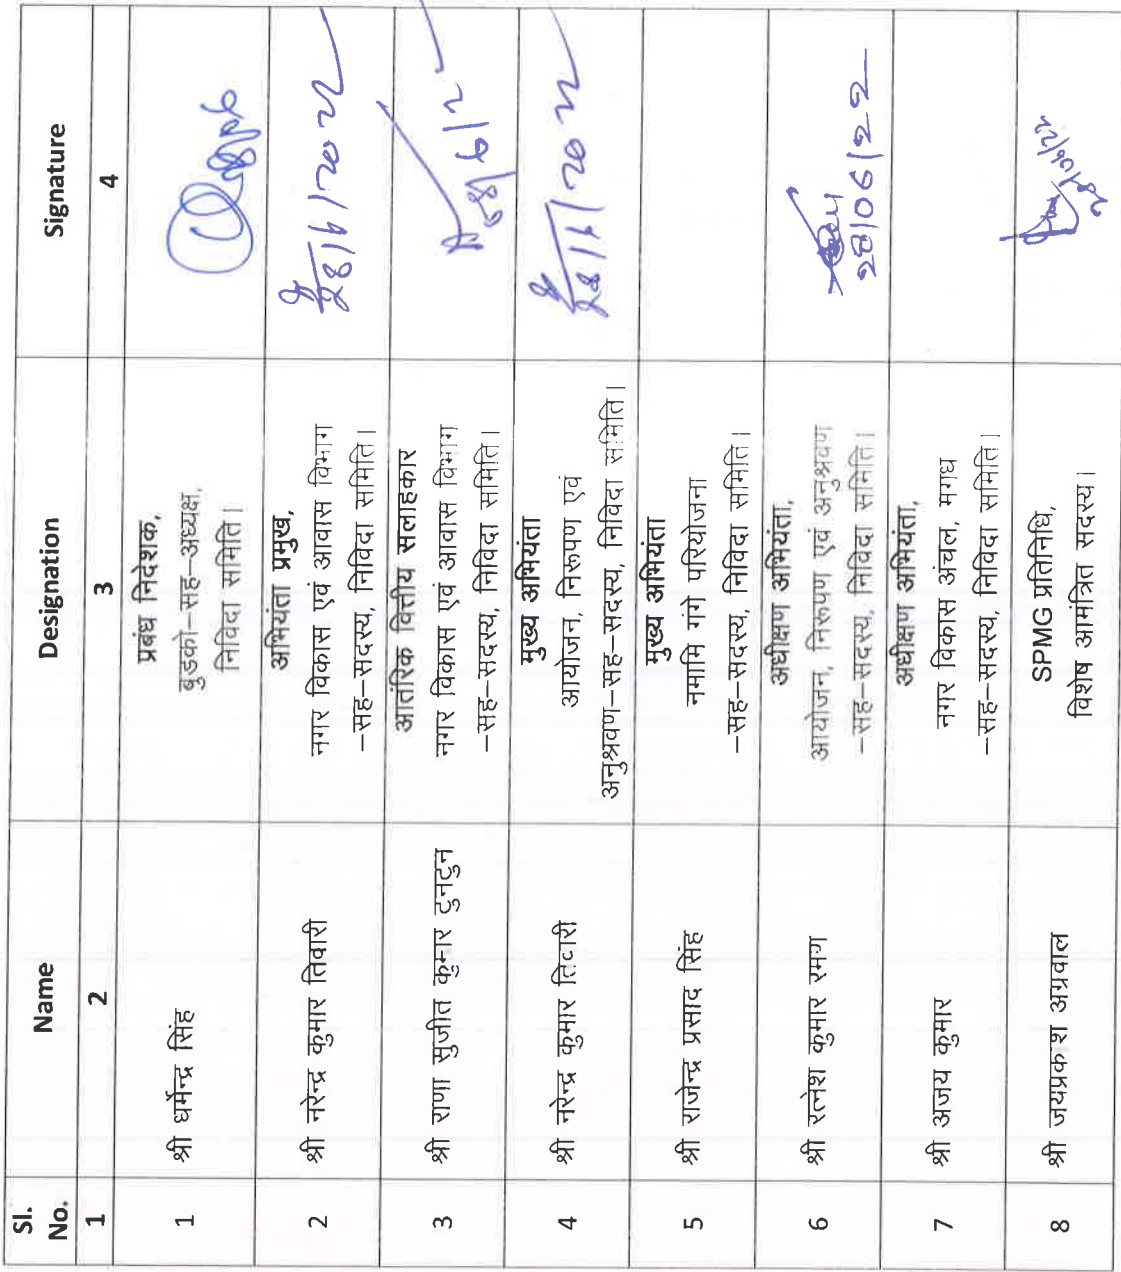 Sl. No. Name Designation Signature
1 2 3 4
1 श्री धर्मेन्द्र सिंह प्रबंध निदेशक,
बुडको–सह–अध्यक्ष,
निविदा समिति।
2 श्री नरेन्द्र कुमार तिवारी अभियंता प्रमुख,
नगर विकास एवं आवास विभाग
–सह–सदस्य, निविदा समिति।
28/6/2022
3 श्री राणा सुजीत कुमार टुनटुन आतंरिक वित्तीय सलाहकार
नगर विकास एवं आवास विभाग
–सह–सदस्य, निविदा समिति।
4 श्री नरेन्द्र कुमार तिवारी मुख्य अभियंता
आयोजन, निरूपण एवं
अनुश्रवण–सह–सदस्य, निविदा समिति।
28/6/2022
5 श्री राजेन्द्र प्रसाद सिंह मुख्य अभियंता
नमामि गंगे परियोजना
–सह–सदस्य, निविदा समिति।
6 श्री रत्नेश कुमार रमण अधीक्षण अभियंता,
आयोजन, निरूपण एवं अनुश्रवण
–सह–सदस्य, निविदा समिति।
28/06/22
7 श्री अजय कुमार अधीक्षण अभियंता,
नगर विकास अंचल, मगध
–सह–सदस्य, निविदा समिति।
8 श्री जयप्रकाश अग्रवाल SPMG प्रतिनिधि,
विशेष आमंत्रित सदस्य।
28/06/22